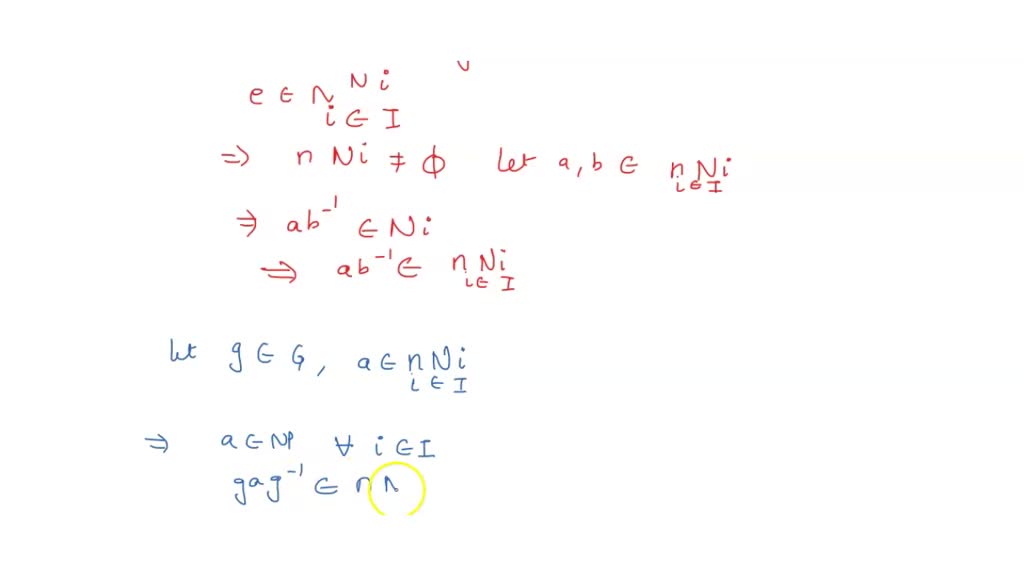 e ∈ ∩ Ni
i ∈ I
⇒ ∩ Ni ≠ φ let a, b ∈ ∩ Ni
i ∈ I
⇒ ab⁻¹ ∈ Ni
⇒ ab⁻¹ ∈ ∩ Ni
i ∈ I
let g ∈ G, a ∈ ∩ Ni
i ∈ I
⇒ a ∈ Ni ∀ i ∈ I
gag⁻¹ ∈ ∩